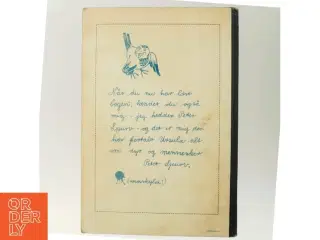 Når du nu har læst
bogen, kender du også
mig - jeg hedder Peter
Spurv - og det er mig, som
har fortalt Ursula alt
om dyr og mennesker
Peter Spurv.
(mærkeplet)
OR
DER
LY